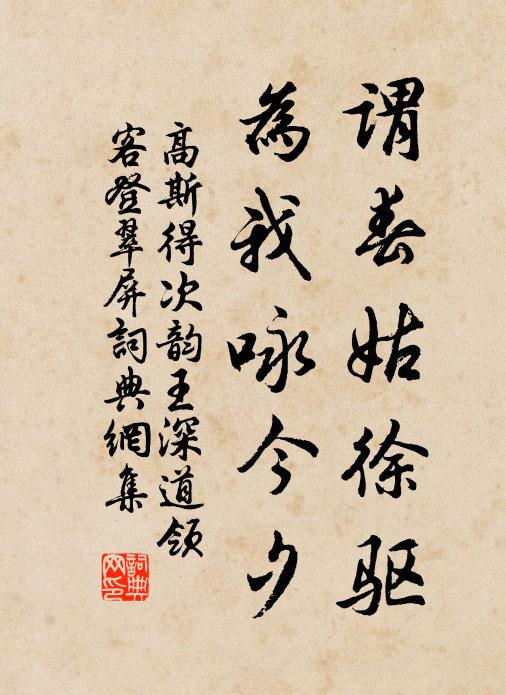 謂春姑徐驱
為我咏今夕
高斯得次韵王深道領
客登翠屏詞典網集
詞典
网印